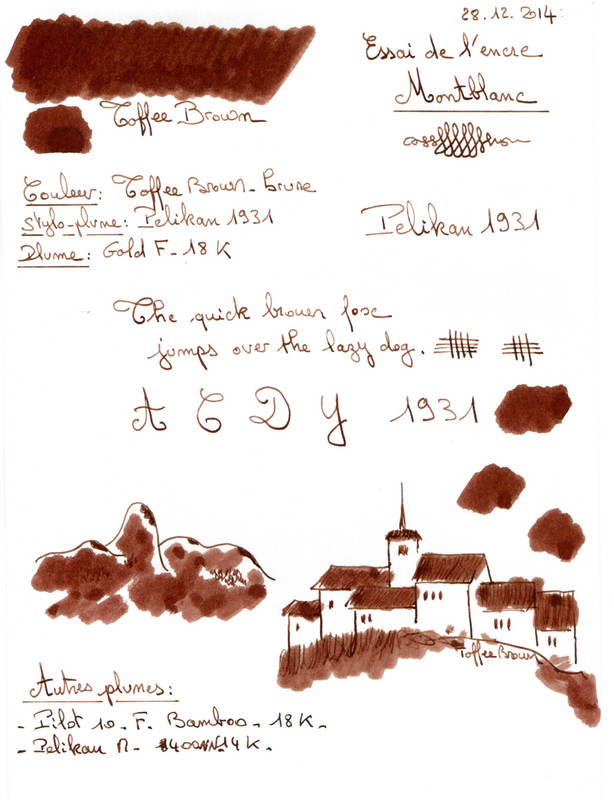 28.12.2014
Essai de l'encre
Montblanc
Toffee Brown
Couleur: Toffee Brown - brune
Stylo-plume: Pelikan 1931
Plume: Gold F - 18 K
Pelikan 1931
The quick brown fox
jumps over the lazy dog.
A C D Y 1931
Toffee Brown
Autres plumes:
- Pilot 10 - F. Bamboo - 18 K -
- Pelikan M - 400 14 K -